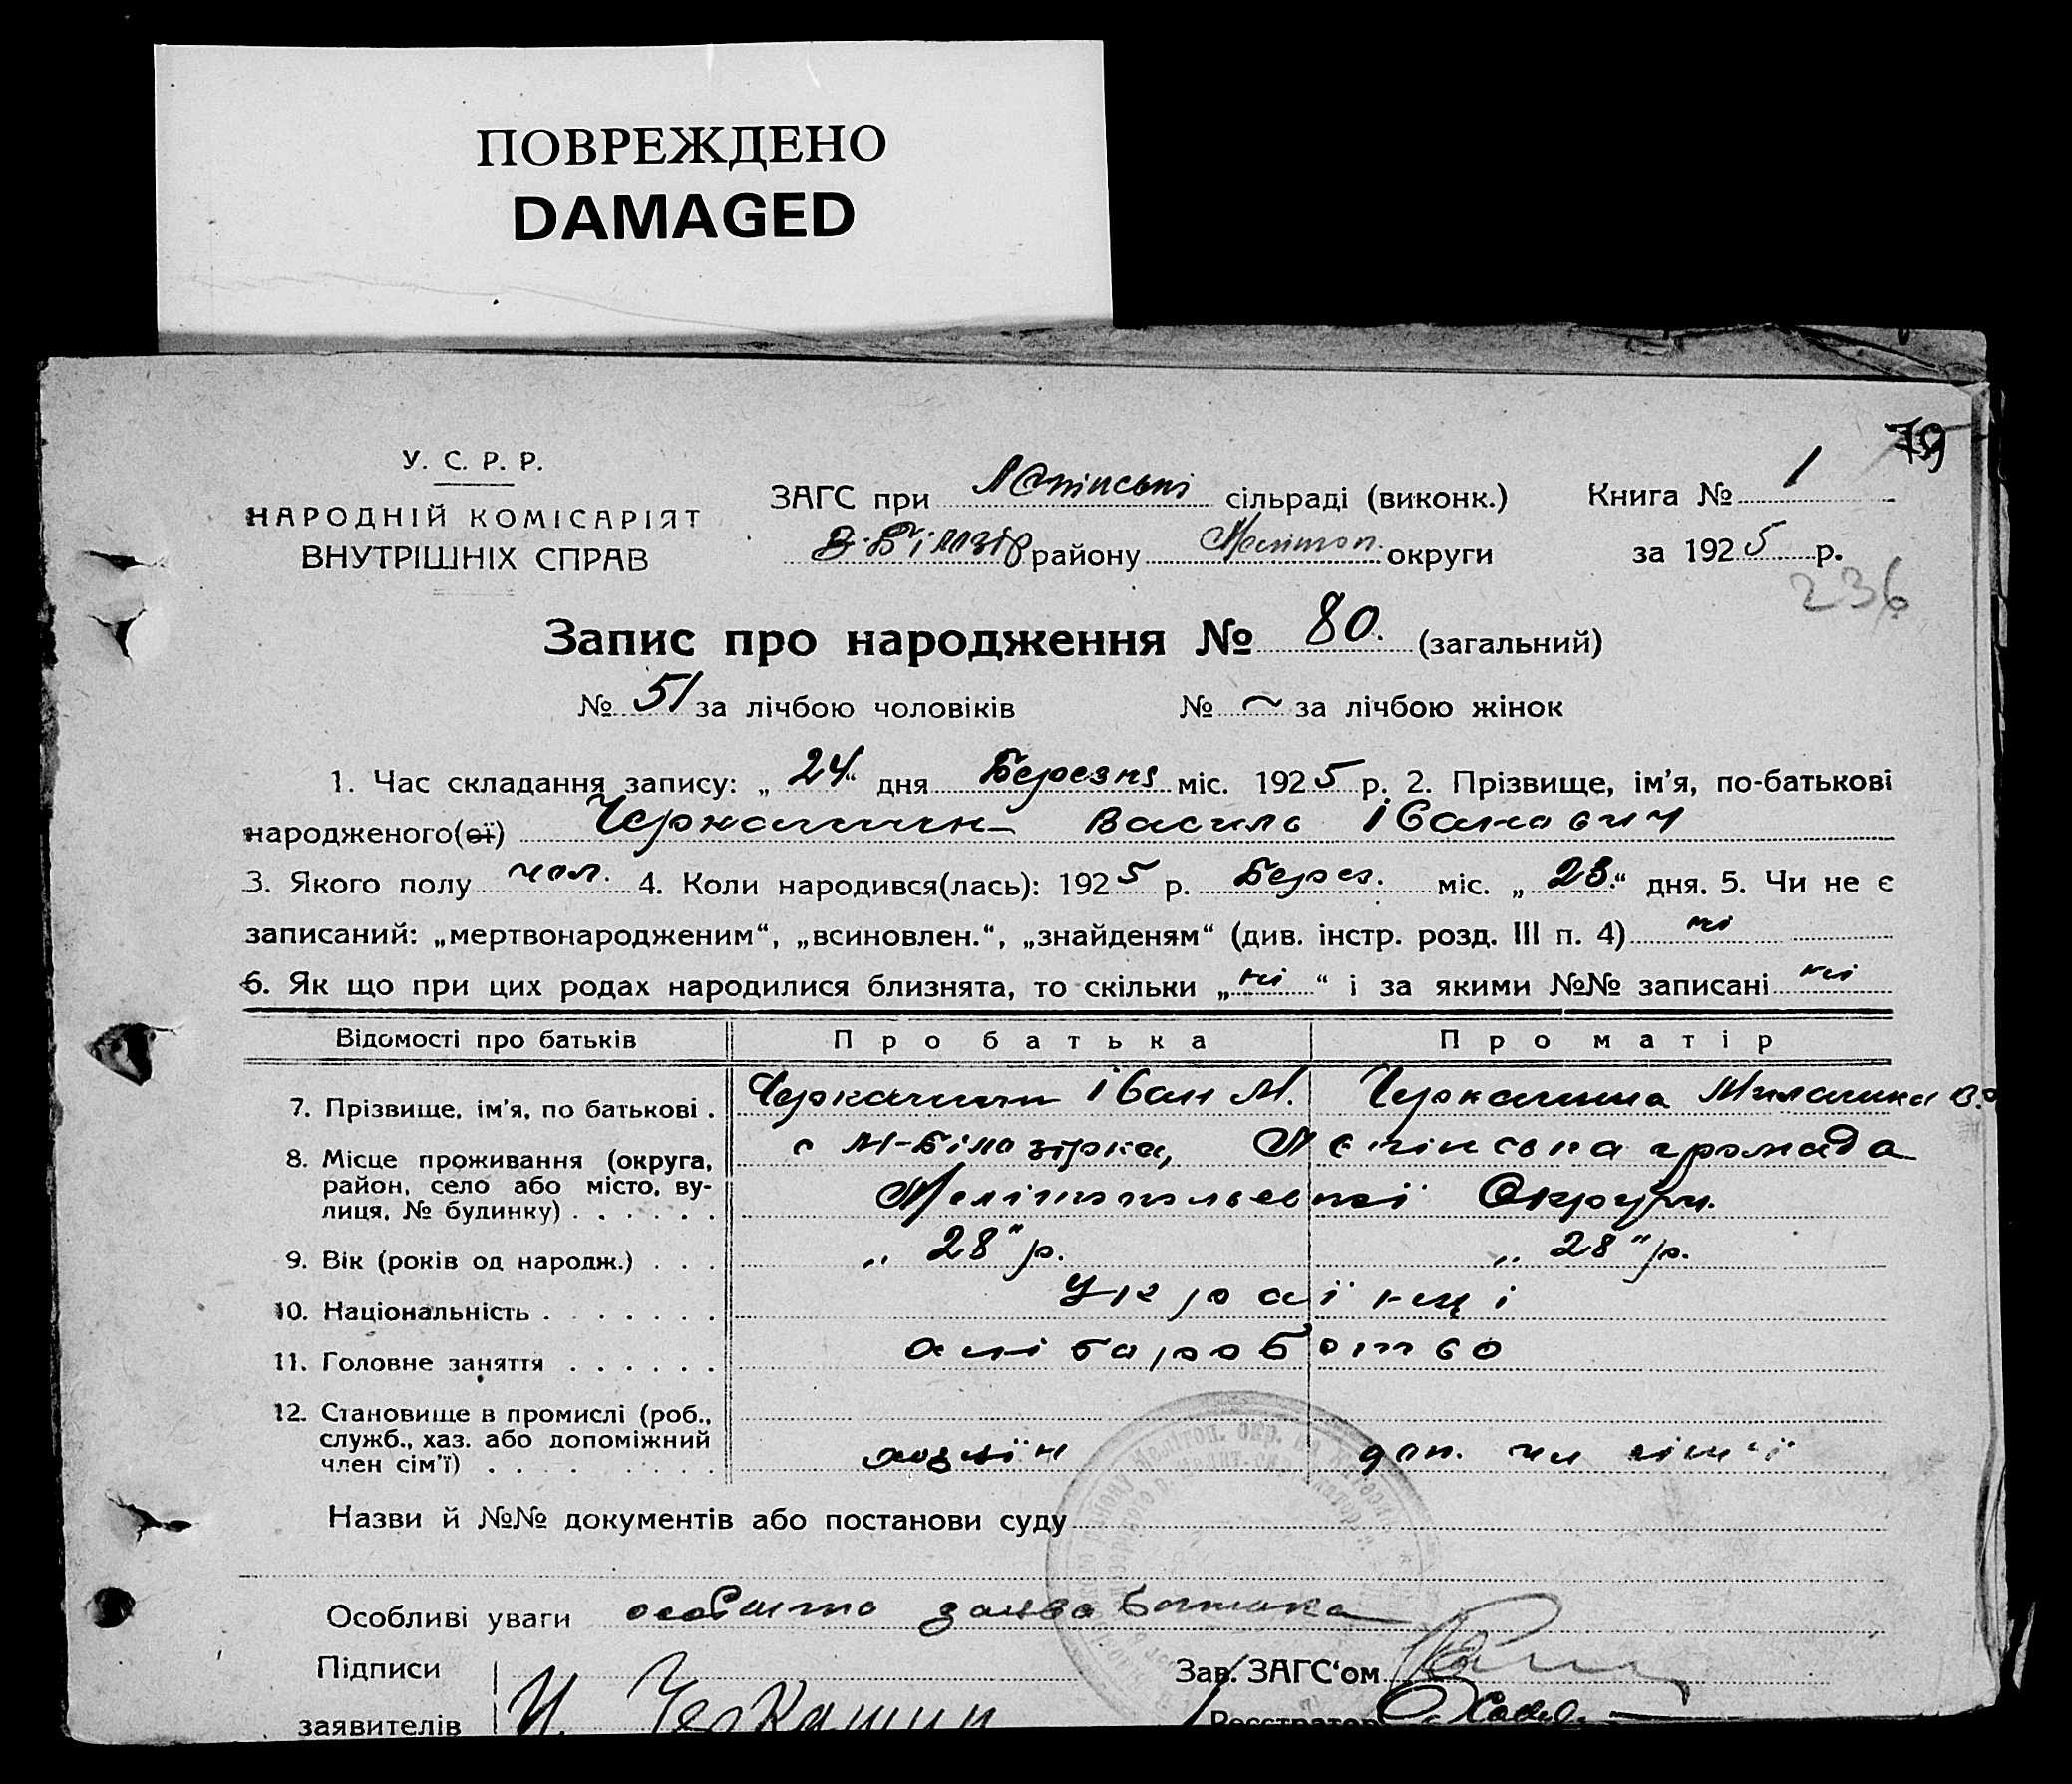 ПОВРЕЖДЕНО
DAMAGED
79
У. С. Р. Р.
НАРОДНІЙ КОМІСАРІЯТ
ВНУТРІШНІХ СПРАВ
ЗАГС при сільраді (виконк.) Книга № 1
В-Білозір району Мелітоп. округи за 1925 р.
236
Запис про народження № 80. (загальний)
№ 51 за лічбою чоловіків № ~ за лічбою жінок
1. Час складання запису: „24“ дня Березня міс. 1925 р. 2. Прізвище, ім'я, по-батькові
народженого(ої) Черкашин Василь Іванович
3. Якого полу чол. 4. Коли народився(лась): 1925 р. Берез. міс. „23.“ дня. 5. Чи не є
записаний: „мертвонародженим“, „всиновлен.“, „знайденям“ (див. інстр. розд. III п. 4) ні
6. Як що при цих родах народилися близнята, то скільки „ні“ і за якими №№ записані ні
Відомості про батьків Про батька Про матір
7. Прізвище, ім'я, по батькові . Черкашин Іван М. Черкашина Миланика В.
8. Місце проживання (округа, район, село або місто, вулиця, № будинку) . . . . . . с М-Білозірка, громада
Мелітопольської Округи.
9. Вік (років од народж.) . . . „28" р. „28" р.
10. Національність . . . . . . . Українці
11. Головне заняття . . . . . . хліборобство
12. Становище в промислі (роб.,
служб., хаз. або допоміжний
член сім'ї) . . . . . . . . хазяїн доп. чл сім'ї
Назви й №№ документів або постанови суду
Особливі уваги особиста заява батька
Підписи Зав. ЗАГС'ом
заявителів И. Черкашин Реєстратор